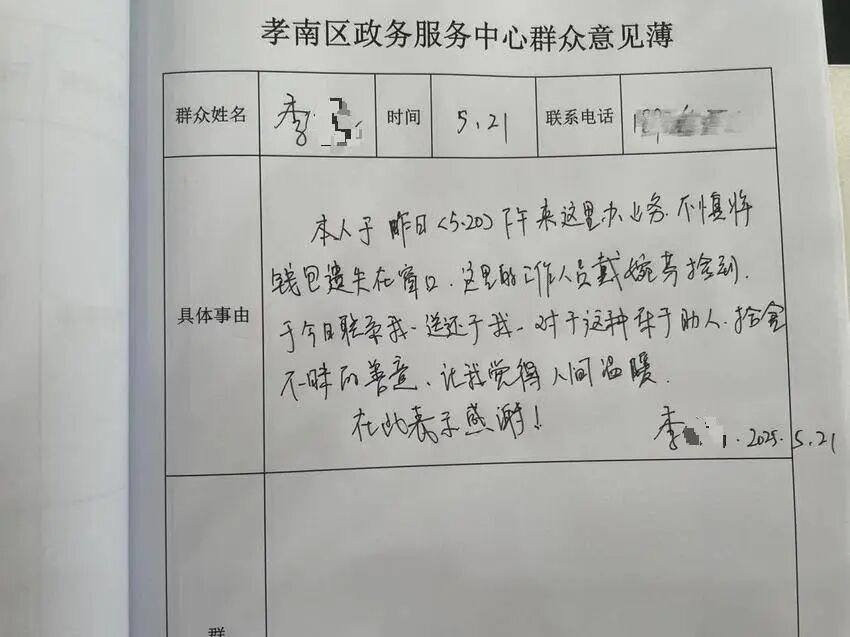 孝南区政务服务中心群众意见薄
群众姓名 李 时间 5.21 联系电话 189
具体事由
本人于昨日(5.20)下午来这里办业务.不慎将
钱包遗失在窗口.这里的工作人员戴婉芳捡到.
于今日联系我.送还于我.对于这种乐于助人.拾金
不昧的善意.让我觉得人间温暖.
在此表示感谢!
李 .2025.5.21
群